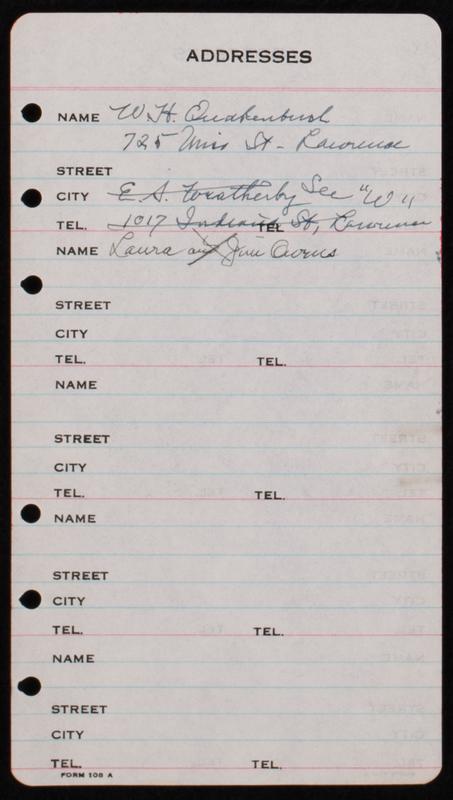 ADDRESSES
NAME W. H. Quakenbush
725 Miss St - Lawrence
STREET
CITY E. S. Weatherby See "W"
TEL. 1017 Indiana St, Lawrence TEL.
NAME Laura and Jim Owens
STREET
CITY
TEL. TEL.
NAME
STREET
CITY
TEL. TEL.
NAME
STREET
CITY
TEL. TEL.
NAME
STREET
CITY
TEL. TEL.
FORM 108 A